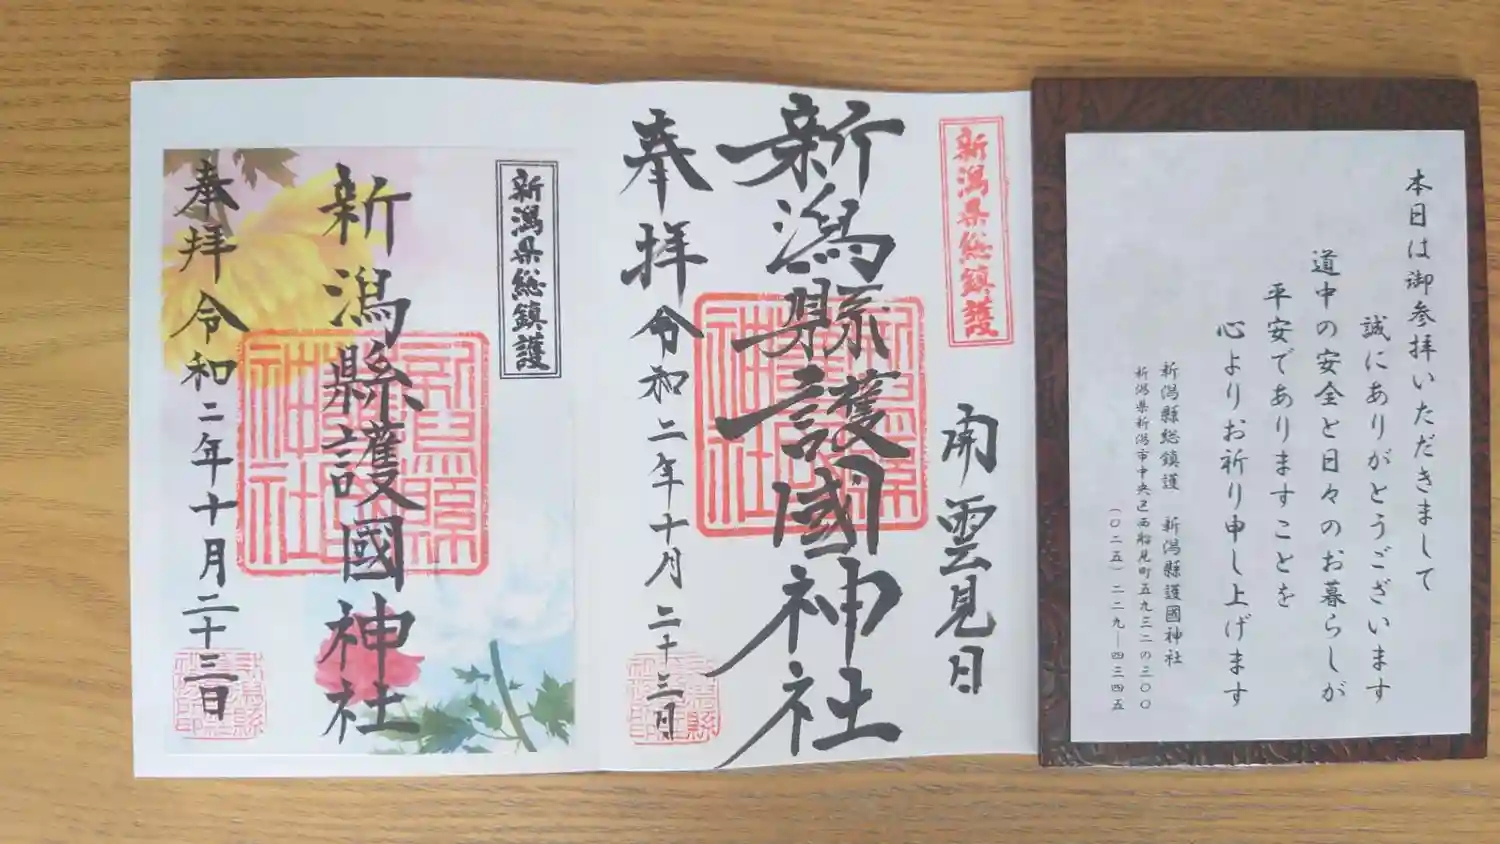 本日は御参拝いただきまして
誠にありがとうございます
道中の安全と日々のお暮らしが
平安でありますことを
心よりお祈り申し上げます
新潟縣総鎮護 新潟縣護國神社
新潟県新潟市中央区西船見町五九三二の三〇〇
(〇二五)二二九―四三四五
新潟県総鎮護
新潟縣護國神社
奉拝 令和二年十月二十三日
新潟県総鎮護
新潟縣護國神社
奉拝 令和二年十月二十三日